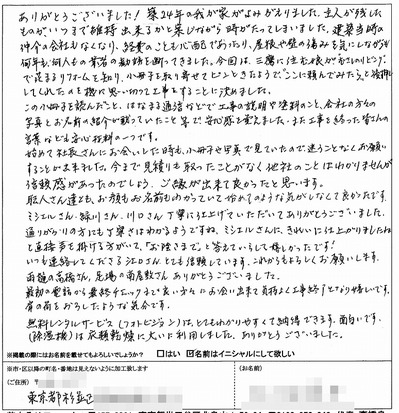 ありがとうございました！築24年の我が家がよみがえりました。主人が残した
ものがいつまで維持出来るかと案じながら時がたってしまいました。建築当時の
仲介の会社もなくなり、経費のことも心配であったり、屋根や壁の痛みを気にしながら
何年も何人もの業者の勧誘を断ってきました。今回は、三鷹に住む娘が
小冊子を取り寄せてピンときたようで"ここに頼んでみたら"と後押し
してくれたのを機に思い切って工事をすることに決めました。
この小冊子を読んだこと、はなまる通信などで工事の説明や塗料のこと、会社の方々の
写真とお名前の紹介が載っていたこと等で安心感を覚えました。また工事を終った皆さんの
言葉なども安心材料の一つです。
始めて社長さんにお会いした時も、小冊子や写真で見ていたので迷うことなくお願い
することが出来ました。今まで見積りも取ったことがなく他社のことはわかりませんが
信頼感があったのでしょう、ご縁が出来て良かったと思います。
職人さん達とも、お顔もお名前もわかっていて始めてのような気がしなくて良かったです。
ミシエルさん、緑川さん、川口さん丁寧に仕上げていただいてありがとうございました。
通りがかりの方にも丁寧さはわかるようですね、ミシエルさんに、きれいに仕上がりましたね
と直接声を掛ける方がいて、"お陰さまで"と答えていらして嬉しかったです！
いつも連絡してくださる江口さん、とても信頼しています。これからもよろしくお願いします。
雨樋の高橋さん、足場の南鳶数さんありがとうございました。
最初の電話から最終チェックまで良い方々にお会い出来て気持よく工事を終了となり嬉しいです。
肩の荷をおろしたような気分です。
無料レンタルサービス(フォトビジョン)は、とてもわかりやすくて納得できます。面白いです。
(除湿機)は衣類乾燥に大いに利用しました。ありがとうございました。
※掲載の際にはお名前を載せてもよろしいでしょうか？ □はい ☑名前をイニシャルにして欲しい
※市・区以降の町名・番地は見えないように加工致します
(ご住所) 〒
(お名前)
東京都杉並区